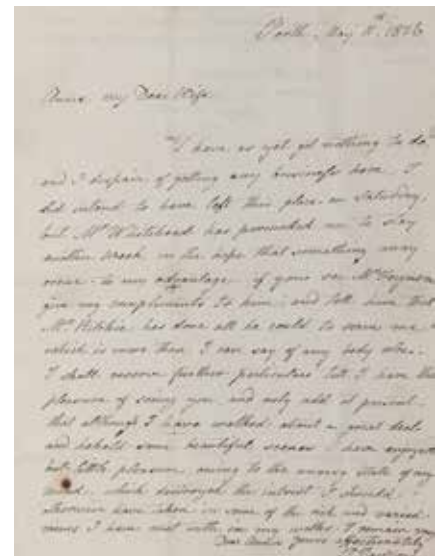 Perth, May 11th. 1826
Anna, my Dear Wife
I have as yet got nothing to do
and I despair of getting any business here. I
did intend to have left this place on Saturday,
but Mr Whitehead has persuaded me to stay
another week in the hope that something may
occur to my advantage. if you see
give my compliments to him, and tell him that
Mr Ritchie has done all he could to serve me
which is more than I can say of any body else.
I shall reserve further particulars till I have the
pleasure of seeing you, and only add at present
that although I have walked about a great deal
and beheld some beautiful scenes I have enjoyed
but little pleasure, owing to the uneasy state of my
mind, which destroyed the interest I should
otherwise have taken in some of the rich and varied
views I have met with in my walks. I remain
Dear yours affectionately